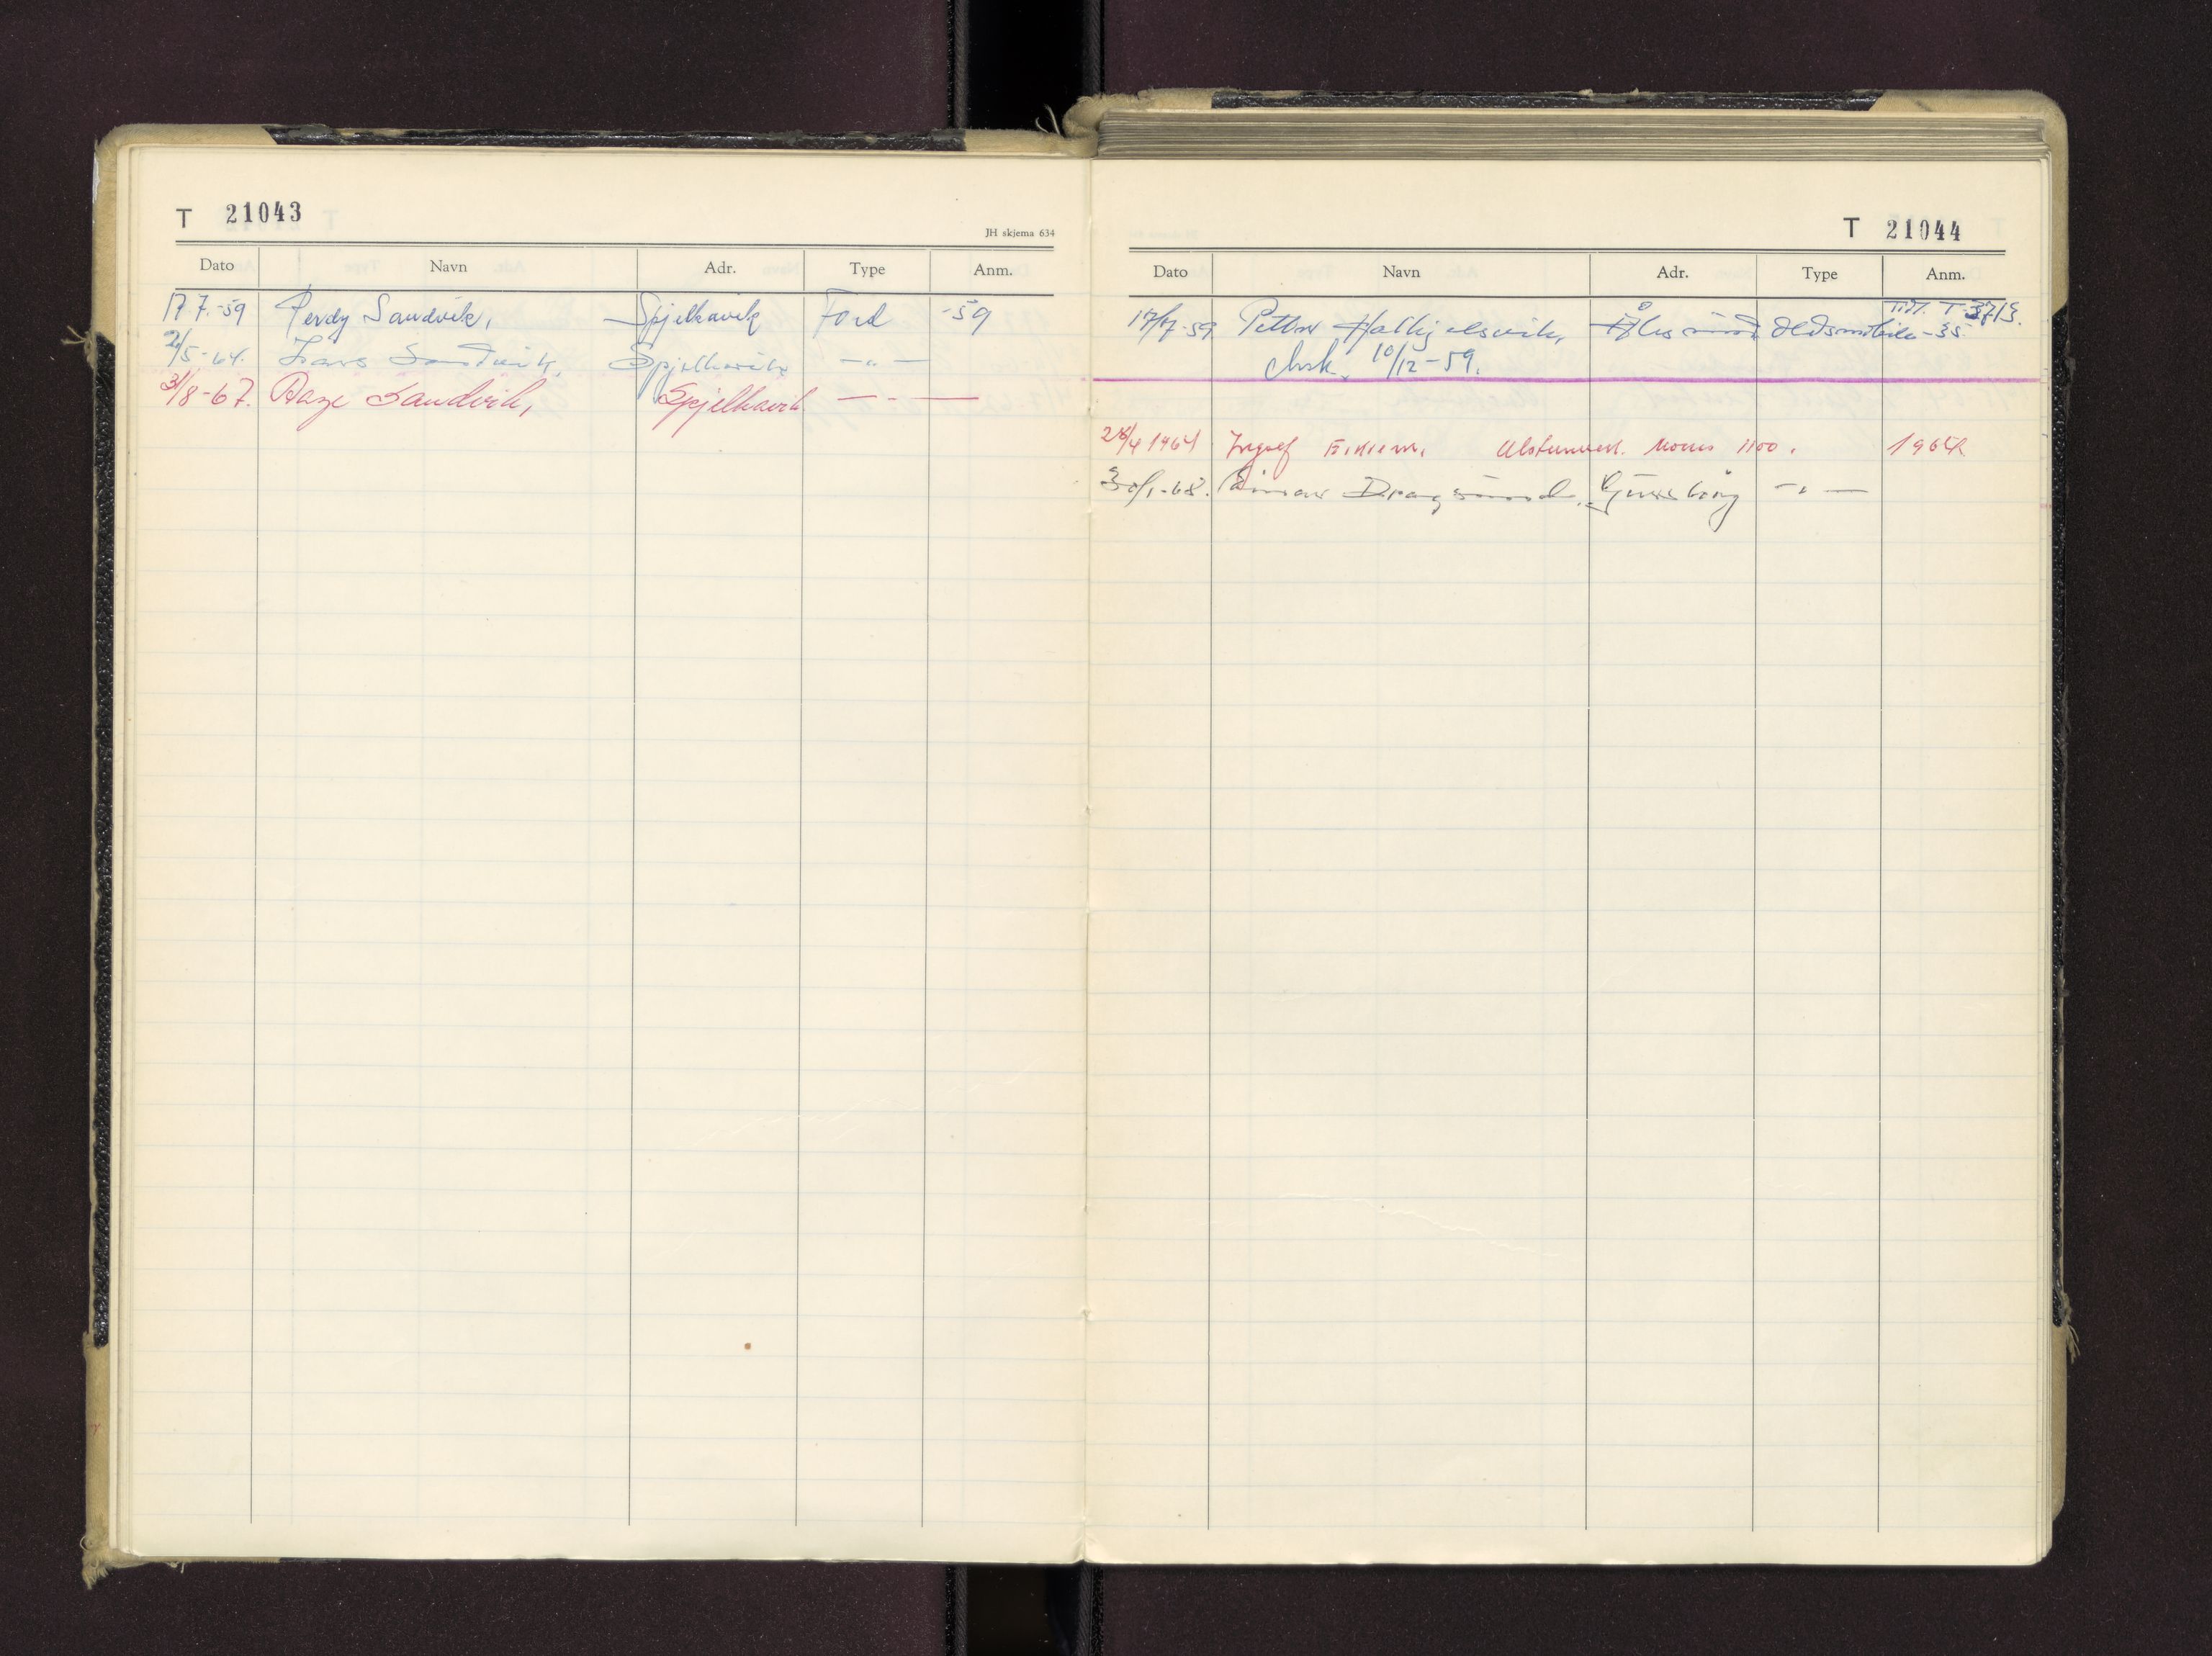 T 21043
JH skjema 634
Dato Navn Adr. Type Anm.
17 7.-59 Perdy Sandvik, Spjelkavik Ford -59
2/5-64. Lars Sandvik, Spjelkavik —"—
31/8-67. Aage Sandvik, Spjelkavik —"—
T 21044
Dato Navn Adr. Type Anm.
Tidl. T-3713.
17/7-59 Petter Halkjelsvik, Ålesund Oldsmobile -35
Avsk. 10/12-59.
28/4 1964 Ingolf Eikrem, Ulsteinvik. Morris 1100. 1964
30/1-68. Einar Dragsund, Gurskøy —"—